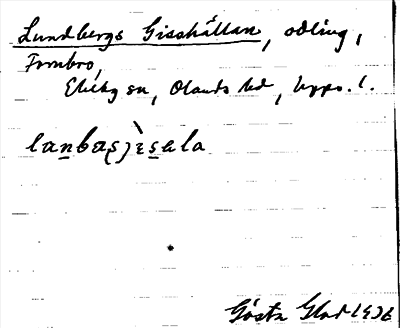 Lundbergs Gisshällan, odling,
Fornbro,
Ekeby sn, Olands hd, Upps. l.
Gösta Glad 1936